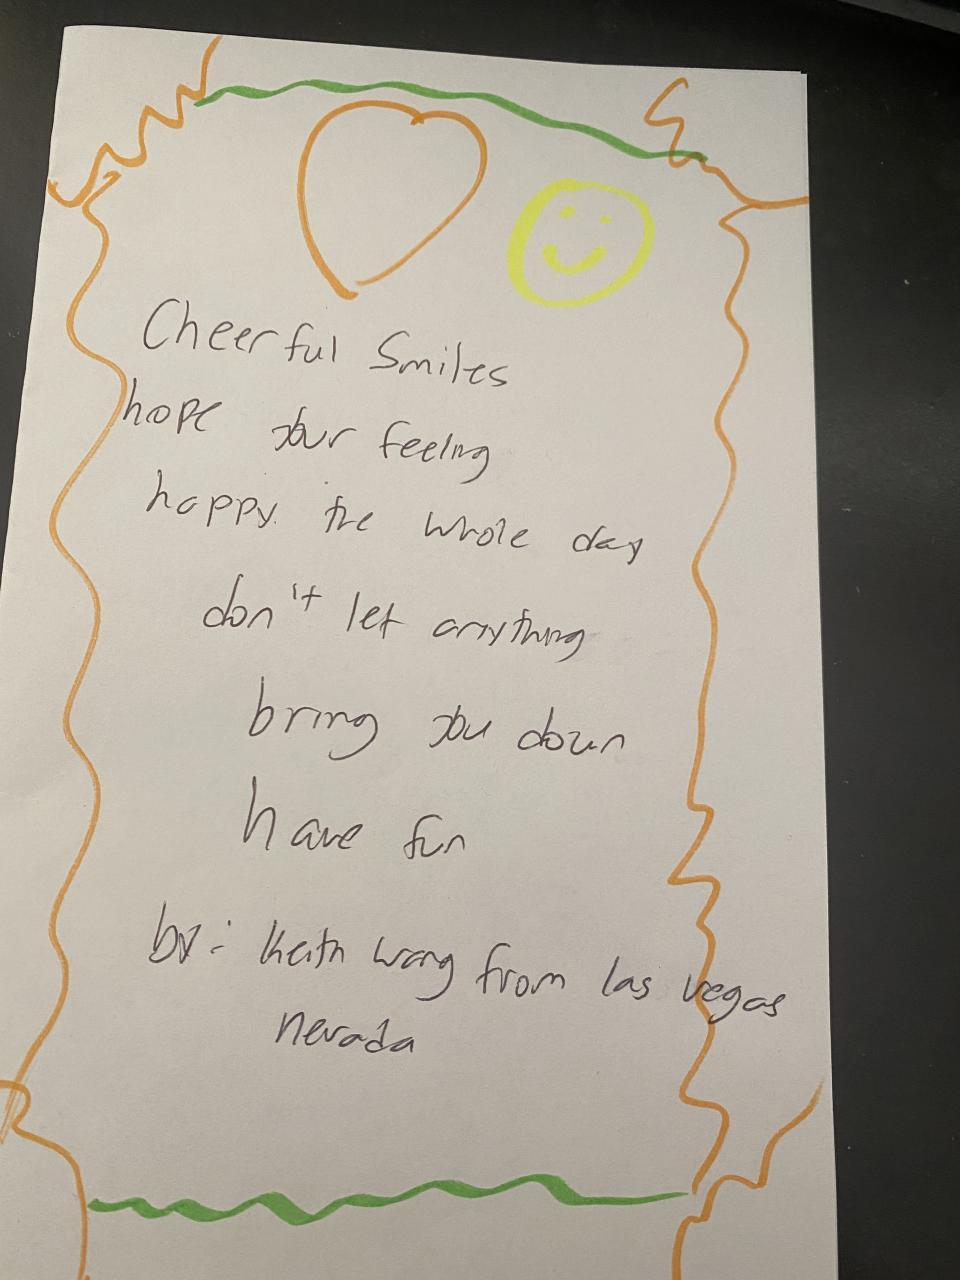 Cheerful Smiles
hope your feeling
happy the whole day
don't let anything
bring you down
have fun
by: Keith Wang from las vegas
nevada